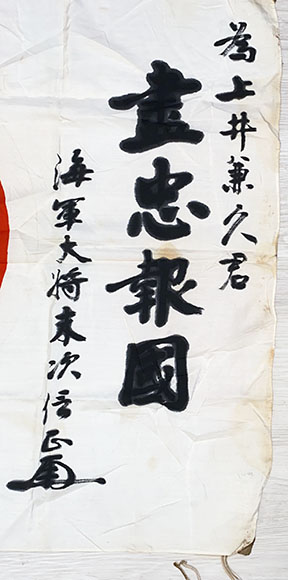 為上井兼久君
盡忠報國
海軍大將末次信正